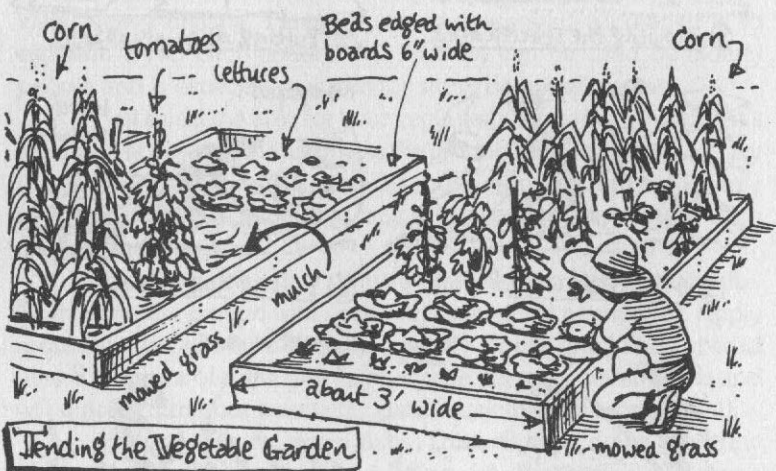 corn
tomatoes
lettuces
Beds edged with
boards 6" wide
Corn
mulch
mowed grass
about 3' wide
mowed grass
Tending the Vegetable Garden